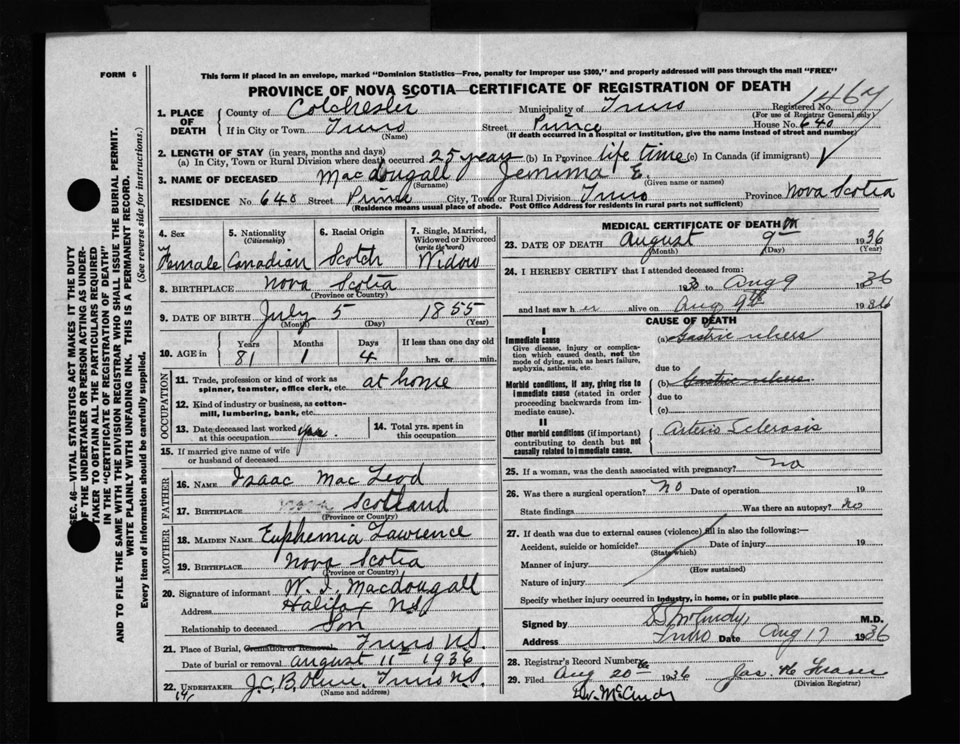 FORM 6
This form if placed in an envelope, marked "Dominion Statistics—Free, penalty for improper use $300," and properly addressed will pass through the mail "FREE"
PROVINCE OF NOVA SCOTIA—CERTIFICATE OF REGISTRATION OF DEATH
1467
1. PLACE OF DEATH County of Colchester Municipality of Truro Registered No.
(For use of Registrar General only)
If in City or Town Truro Street Prince House No. 640
(Name) (If death occurred in a hospital or institution, give the name instead of street and number)
2. LENGTH OF STAY (in years, months and days)
(a) In City, Town or Rural Division where death occurred 25 years (b) In Province life time (c) In Canada (if immigrant)
3. NAME OF DECEASED Macdougall Jemima E.
(Surname) (Given name or names)
RESIDENCE No. 640 Street Prince City, Town or Rural Division Truro Province Nova Scotia
(Residence means usual place of abode. Post Office Address for residents in rural parts not sufficient)
4. Sex 5. Nationality (Citizenship) 6. Racial Origin 7. Single, Married, Widowed or Divorced (write the word)
Female Canadian Scotch Widow
8. BIRTHPLACE Nova Scotia
(Province or Country)
9. DATE OF BIRTH July 5 1855
(Month) (Day) (Year)
10. AGE in Years Months Days If less than one day old
81 1 4 hrs. or min.
OCCUPATION
11. Trade, profession or kind of work as spinner, teamster, office clerk, etc. at home
12. Kind of industry or business, as cotton-mill, lumbering, bank, etc.
13. Date deceased last worked at this occupation
14. Total yrs. spent in this occupation
15. If married give name of wife or husband of deceased
FATHER
16. NAME Isaac MacLeod
17. BIRTHPLACE Scotland
(Province or Country)
MOTHER
18. MAIDEN NAME Euphemia Lawrence
19. BIRTHPLACE Nova Scotia
(Province or Country)
20. Signature of informant Macdougall
Address Halifax N.S.
Relationship to deceased Son
21. Place of Burial, Cremation or Removal Truro N.S.
Date of burial or removal August 11th 1936
22. UNDERTAKER J.C.B. Truro N.S.
(Name and address)
MEDICAL CERTIFICATE OF DEATH
23. DATE OF DEATH August 9th 1936
(Month) (Day) (Year)
24. I HEREBY CERTIFY that I attended deceased from:
to Aug 9 1936
and last saw her alive on Aug 9th 1936
CAUSE OF DEATH
I
Immediate cause (a) Gastric ulcers
Give disease, injury or complication which caused death, not the mode of dying, such as heart failure, asphyxia, asthenia, etc.
due to
Morbid conditions, if any, giving rise to immediate cause (stated in order proceeding backwards from immediate cause). (b) Gastric ulcers
due to
(c)
II
Other morbid conditions (if important) contributing to death but not causally related to immediate cause. Arterio Sclerosis
25. If a woman, was the death associated with pregnancy? no
26. Was there a surgical operation? no Date of operation 19
State findings Was there an autopsy? no
27. If death was due to external causes (violence) fill in also the following:—
Accident, suicide or homicide? Date of injury 19
(State which)
Manner of injury
(How sustained)
Nature of injury
Specify whether injury occurred in industry, in home, or in public place
Signed by McCurdy M.D.
Address Truro Date Aug 17 1936
28. Registrar's Record Number
29. Filed Aug 20th 1936 Jas. Fraser
(Division Registrar)
Dr. McCurdy
SEC. 46—VITAL STATISTICS ACT MAKES IT THE DUTY
OF THE UNDERTAKER OR PERSON ACTING AS UNDER-
TAKER TO OBTAIN ALL THE PARTICULARS REQUIRED
IN THE "CERTIFICATE OF REGISTRATION OF DEATH"
AND TO FILE THE SAME WITH THE DIVISION REGISTRAR WHO SHALL ISSUE THE BURIAL PERMIT.
WRITE PLAINLY WITH UNFADING INK. THIS IS A PERMANENT RECORD.
Every item of information should be carefully supplied. (See reverse side for instructions.)